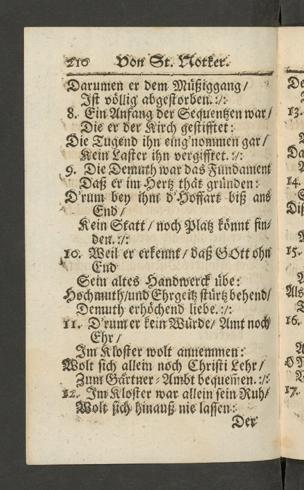 210 Von St. Notker.
Darumen er dem Müßiggang /
Ist völlig abgestorben. :/:
8. Ein Anfang der Sequentzen war /
Die er der Kirch gestifftet:
Die Tugend ihn eing'nommen gar /
Kein Laster ihn vergifftet. :/:
9. Die Demuth war das Fundament
Daß er im Hertz thät gründen:
D'rum bey ihm d'Hoffart biß ans
End /
Kein Statt / noch Platz könnt fin-
den. :/:
10. Weil er erkennt / daß GOtt ohn
End
Sein altes Handwerck übe:
Hochmuth / und Ehrgeitz stürtz behend /
Demuth erhöchend liebe. :/:
11. D'rum er kein Würde / Amt noch
Ehr /
Im Kloster wolt annemmen:
Wolt sich allein noch Christi Lehr /
Zum Gärtner-Ambt bequemen. :/:
12. Im Kloster war allein sein Ruh /
Wolt sich hinauß nie lassen:
Der
13.
14.
15.
16.
17.